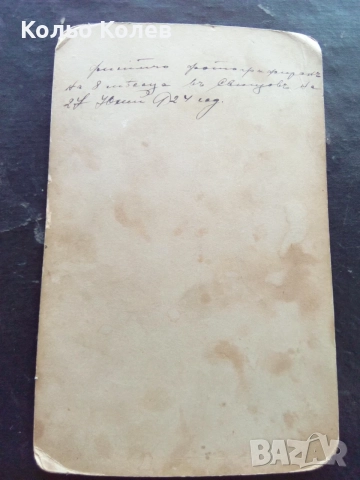 Кольо Колев
фотографиранъ
на 8 месеца въ Свищовъ на
24 год.
BAZAR
bg